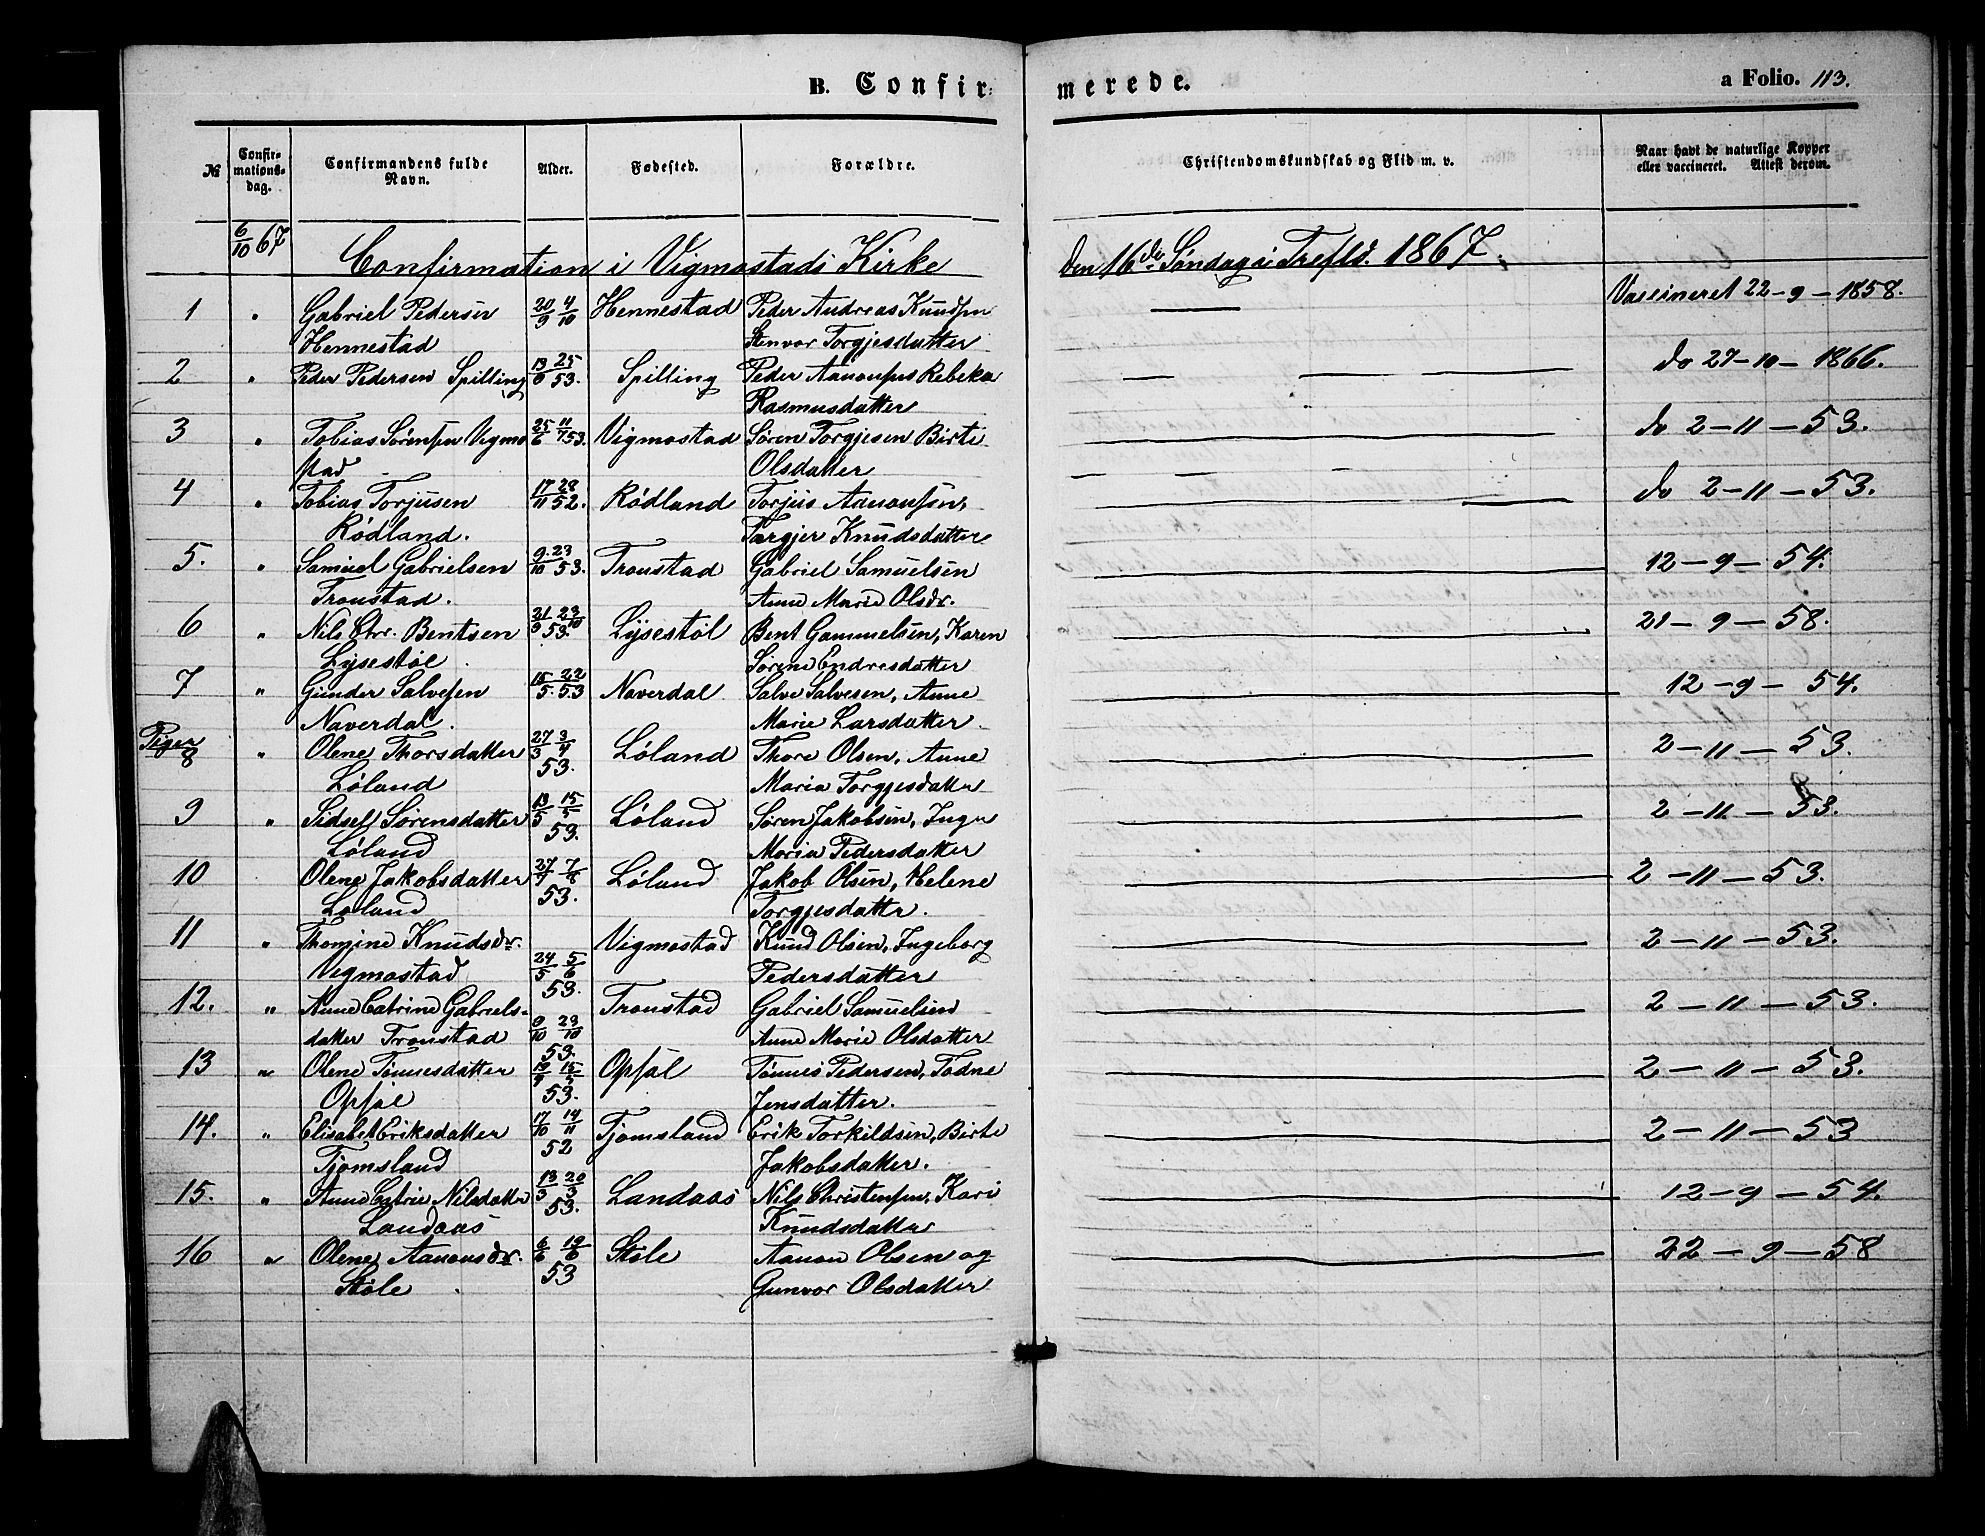 B. Confir-
merede.
a Folio. 113.
№
Confir-
mations-
dag.
Confirmandens fulde
Navn.
Alder.
Fødested.
Forældre.
Christendomskundskab og Flid m. v.
Naar havt de naturlige Kopper
eller vaccineret. Attest derom.
6/10 67
Confirmation i Vigmostads Kirke
den 16de Søndag i Trefld. 1867.
1 " Gabriel Pedersen 20/9 4/10 Hennestad Peder Andreas Knudsen Vaccineret 22-9-1858.
Hennestad Stenvor Torgjesdatter
2 " Peder Pedersen Spilling 25 53. Spilling Peder Aanonsen Rebeka do 27-10-1866.
Rasmusdatter
3 " Tobias Sørensen Vigmo 25/6 11/7 53. Vigmostad Søren Torgjesen Birte do 2-11-53.
stad Olsdatter
4 " Tobias Torjusen 17/11 28 52. Rødland Torjus Aanonsen, do 2-11-53.
Rødland. Targjer Knudsdatter
5. " Samuel Gabrielsen 9/10 23 53. Tronstad Gabriel Samuelsen 12-9-54.
Tronstad. Anne Marie Olsdr.
6 " Nils Chr. Bentsen 53. Lysestøl Bent Gammelsen, Karen 21-9-58.
Lysestøl Sørine Endresdatter
7 " Gunder Salvesen 15/5. 22 53 Naverdal Salve Salvesen, Anne 12-9-54.
Naverdal. Marie Larsdatter
Piger
8 " Olene Thorsdatter 27/3 3/4 Løland Thore Olsen, Anne 2-11-53.
Løland 53. Maria Torgjesdatter
9 " Sidsel Sørensdatter 13/5 15/5 Løland Søren Jakobsen, Inger 2-11-53.
Løland 53. Maria Pedersdatter
10 Olene Jakobsdatter 27/7 7/8 Løland Jakob Olsen, Helene 2-11-53.
Løland 53. Torgjesdatter.
11 " Thomine Knudsdr. Vigmostad Knud Olsen, Ingeborg 2-11-53.
Vigmostad 24/5 5/6 Pedersdatter
53.
12. " Anne Catrine Gabriels- Tronstad Gabriel Samuelsen 2-11-53.
datter Tronstad 9/10 23/10 Anne Marie Olsdatter
53.
13 " Olene Tønnesdatter Opsal Tønnes Pedersen, Todne 2-11-53.
Opsal 53. Jensdatter.
14. " Elisabet Eriksdatter 17/10 14/11 Tjomsland Erik Torkildsen, Birte 2-11-53
Tjomsland 52 Jakobsdatter.
15. " Anne Catrie Nilsdatter 13/3 20/3 Landaas Nils Christensen, Kari 12-9-54.
Landaas 53. Knudsdatter
16 " Olene Aanonsdr. 6/6 19/6 Støle Aanon Olsen og 22-9-58
Støle 53 Gunvor Olsdatter